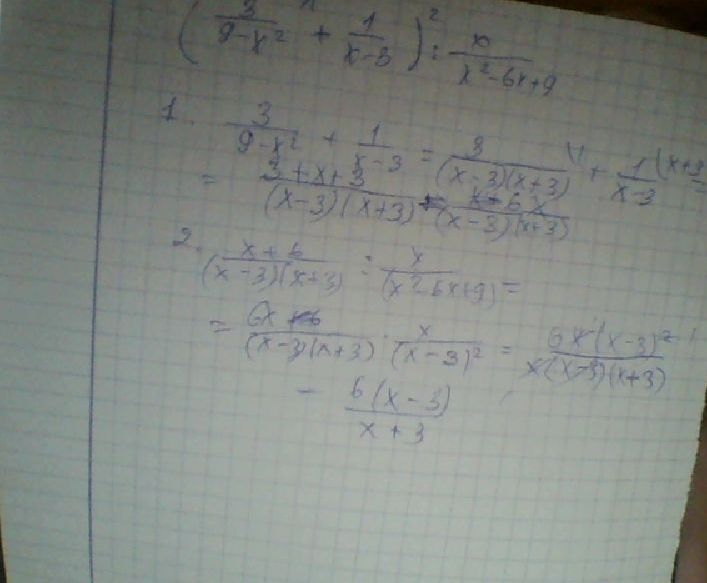 ( 3/(9-x²) + 1/(x-3) )² : x/(x²-6x+9)
1. 3/(9-x²) + 1/(x-3) = 3/((x-3)(x+3)) + 1/(x-3) (x+3 =
= (3+x+3)/((x-3)(x+3)) = 6x/((x-3)(x+3))
2. (x+6)/((x-3)(x+3)) : x/(x²-6x+9) =
= 6x/((x-3)(x+3)) · x/(x-3)² = 6x(x-3)²/(x(x-3)(x+3))
- 6(x-3)/(x+3)